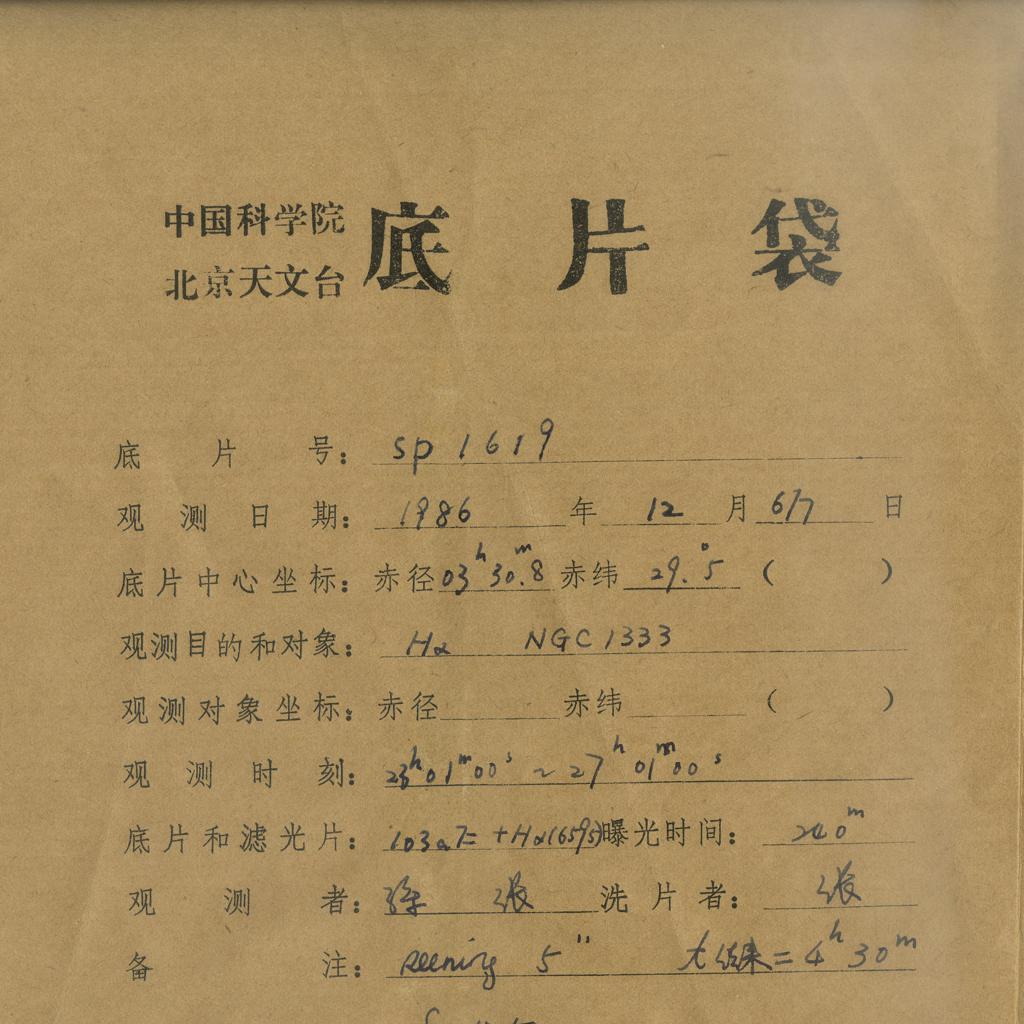 中国科学院
北京天文台
底片袋
底片号：sp 1619
观测日期：1986年12月6/7日
底片中心坐标：赤径03ʰ30.ᵐ8 赤纬29.°5（ ）
观测目的和对象：Hα NGC1333
观测对象坐标：赤径 赤纬 （ ）
观测时刻：23ʰ01ᵐ00ˢ ~ 27ʰ01ᵐ00ˢ
底片和滤光片：103aE + Hα(6595) 曝光时间：240ᵐ
观测者：徐 张 洗片者：张
备注：seening 5″ = 4ʰ30ᵐ